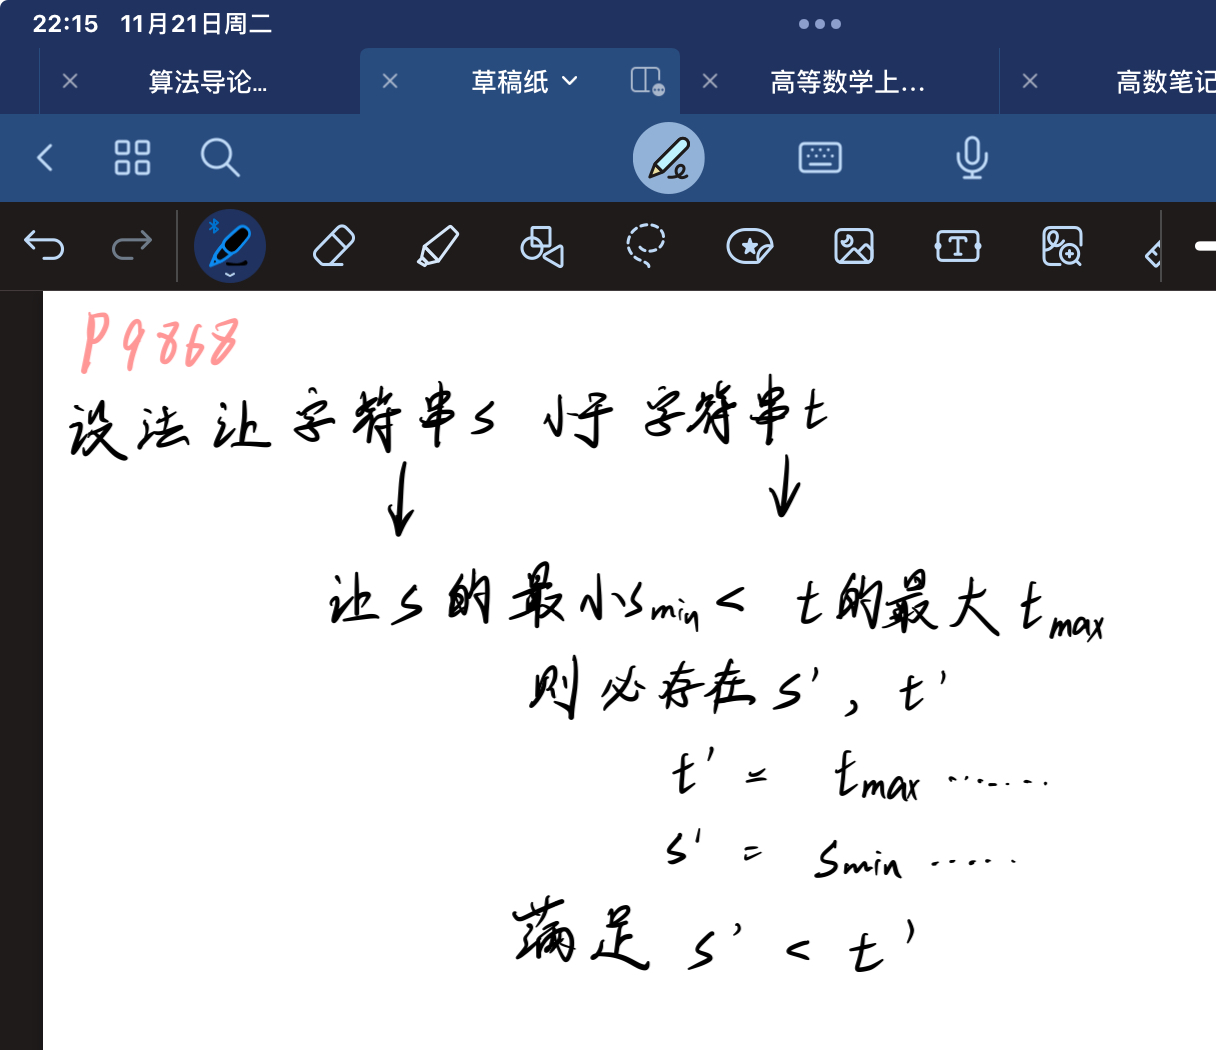 22:15 11月21日周二
算法导论... 草稿纸 高等数学上... 高数笔记
P9868
设法让字符串s 小于 字符串t
让s的最小smin < t的最大tmax
则必存在s', t'
t' = tmax ......
s' = smin ......
满足 s' < t'